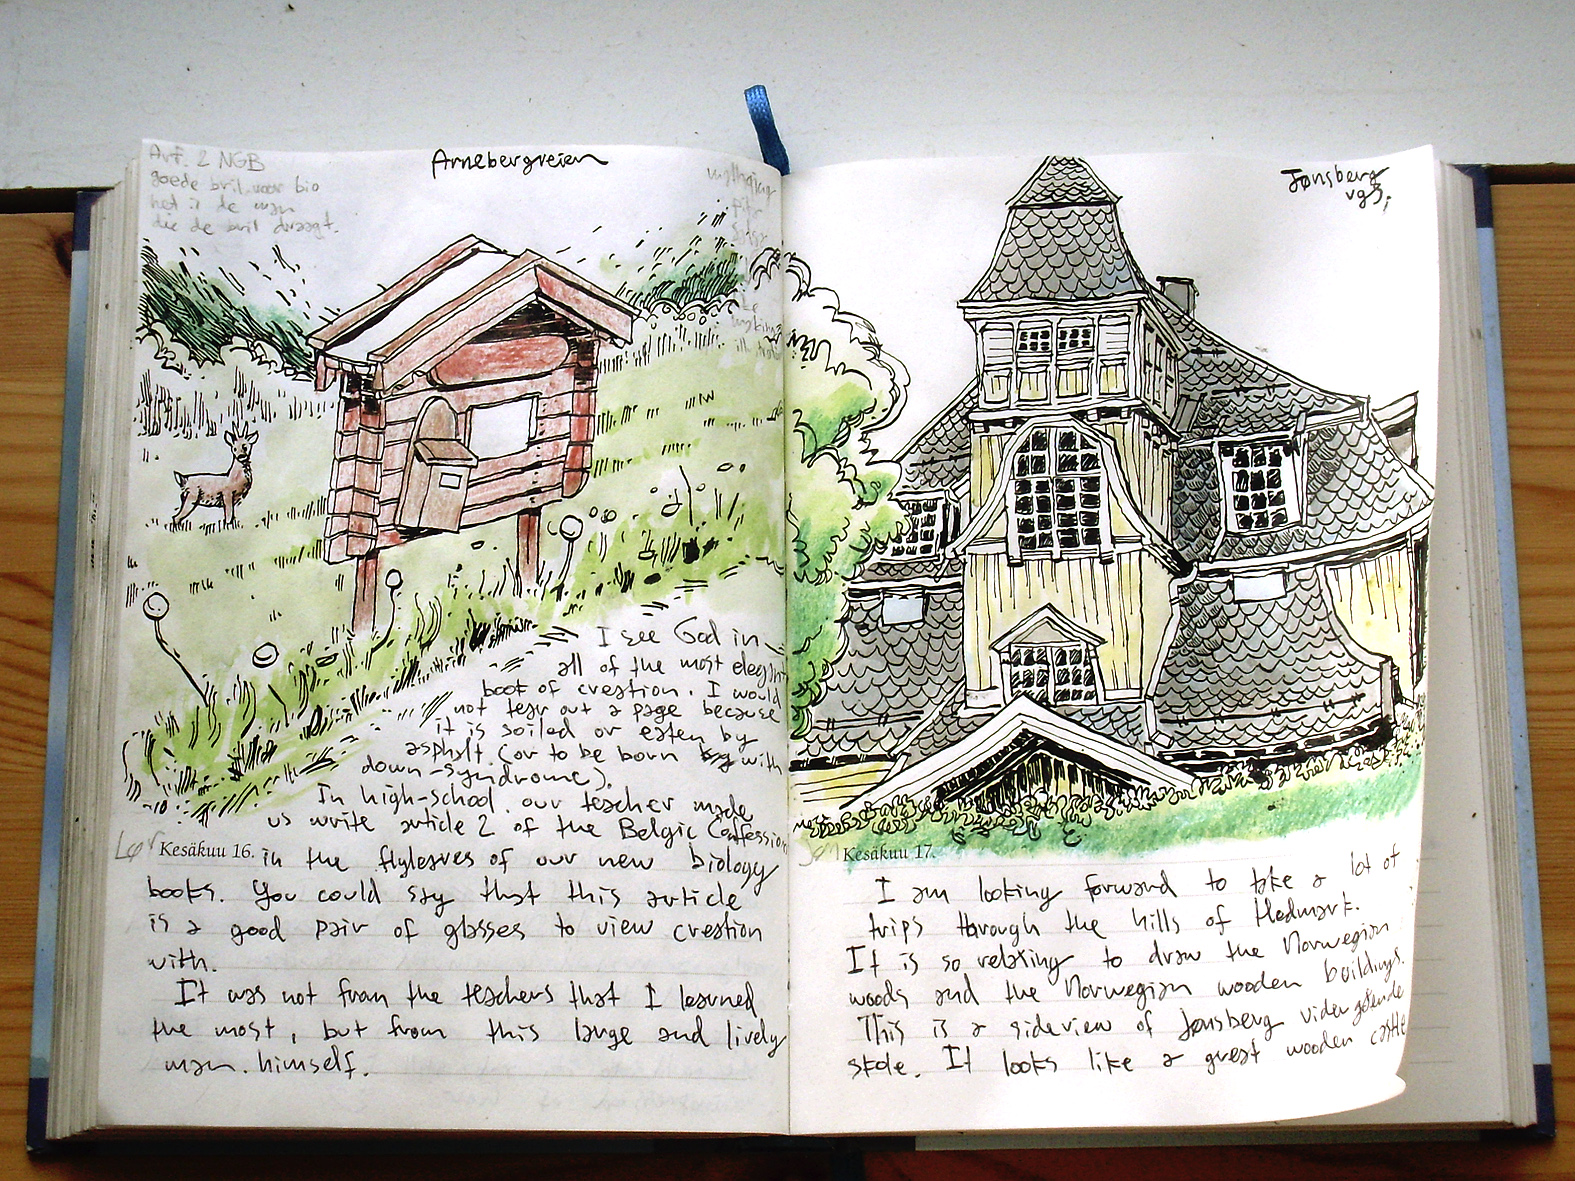 Art. 2 NGB
goede bril voor bio
het is de man
die de bril draagt.
Arnebergveien
I see God in
all of the most elegant
book of creation. I would
not tear out a page because
it is soiled or eaten by
asphalt (or to be born with
down-syndrome).
In high-school, our teacher made
us write article 2 of the Belgic Confession
Kesäkuu 16. in the flyleaves of our new biology
books. You could say that this article
is a good pair of glasses to view creation
with.
It was not from the teachers that I learned
the most, but from this large and lively
man himself.
Jønsberg
vgs,
Kesäkuu 17.
I am looking forward to take a lot of
trips through the hills of Hedmark.
It is so relaxing to draw the Norwegian
woods and the Norwegian wooden buildings.
This is a sideview of Jønsberg videregående
skole. It looks like a great wooden castle